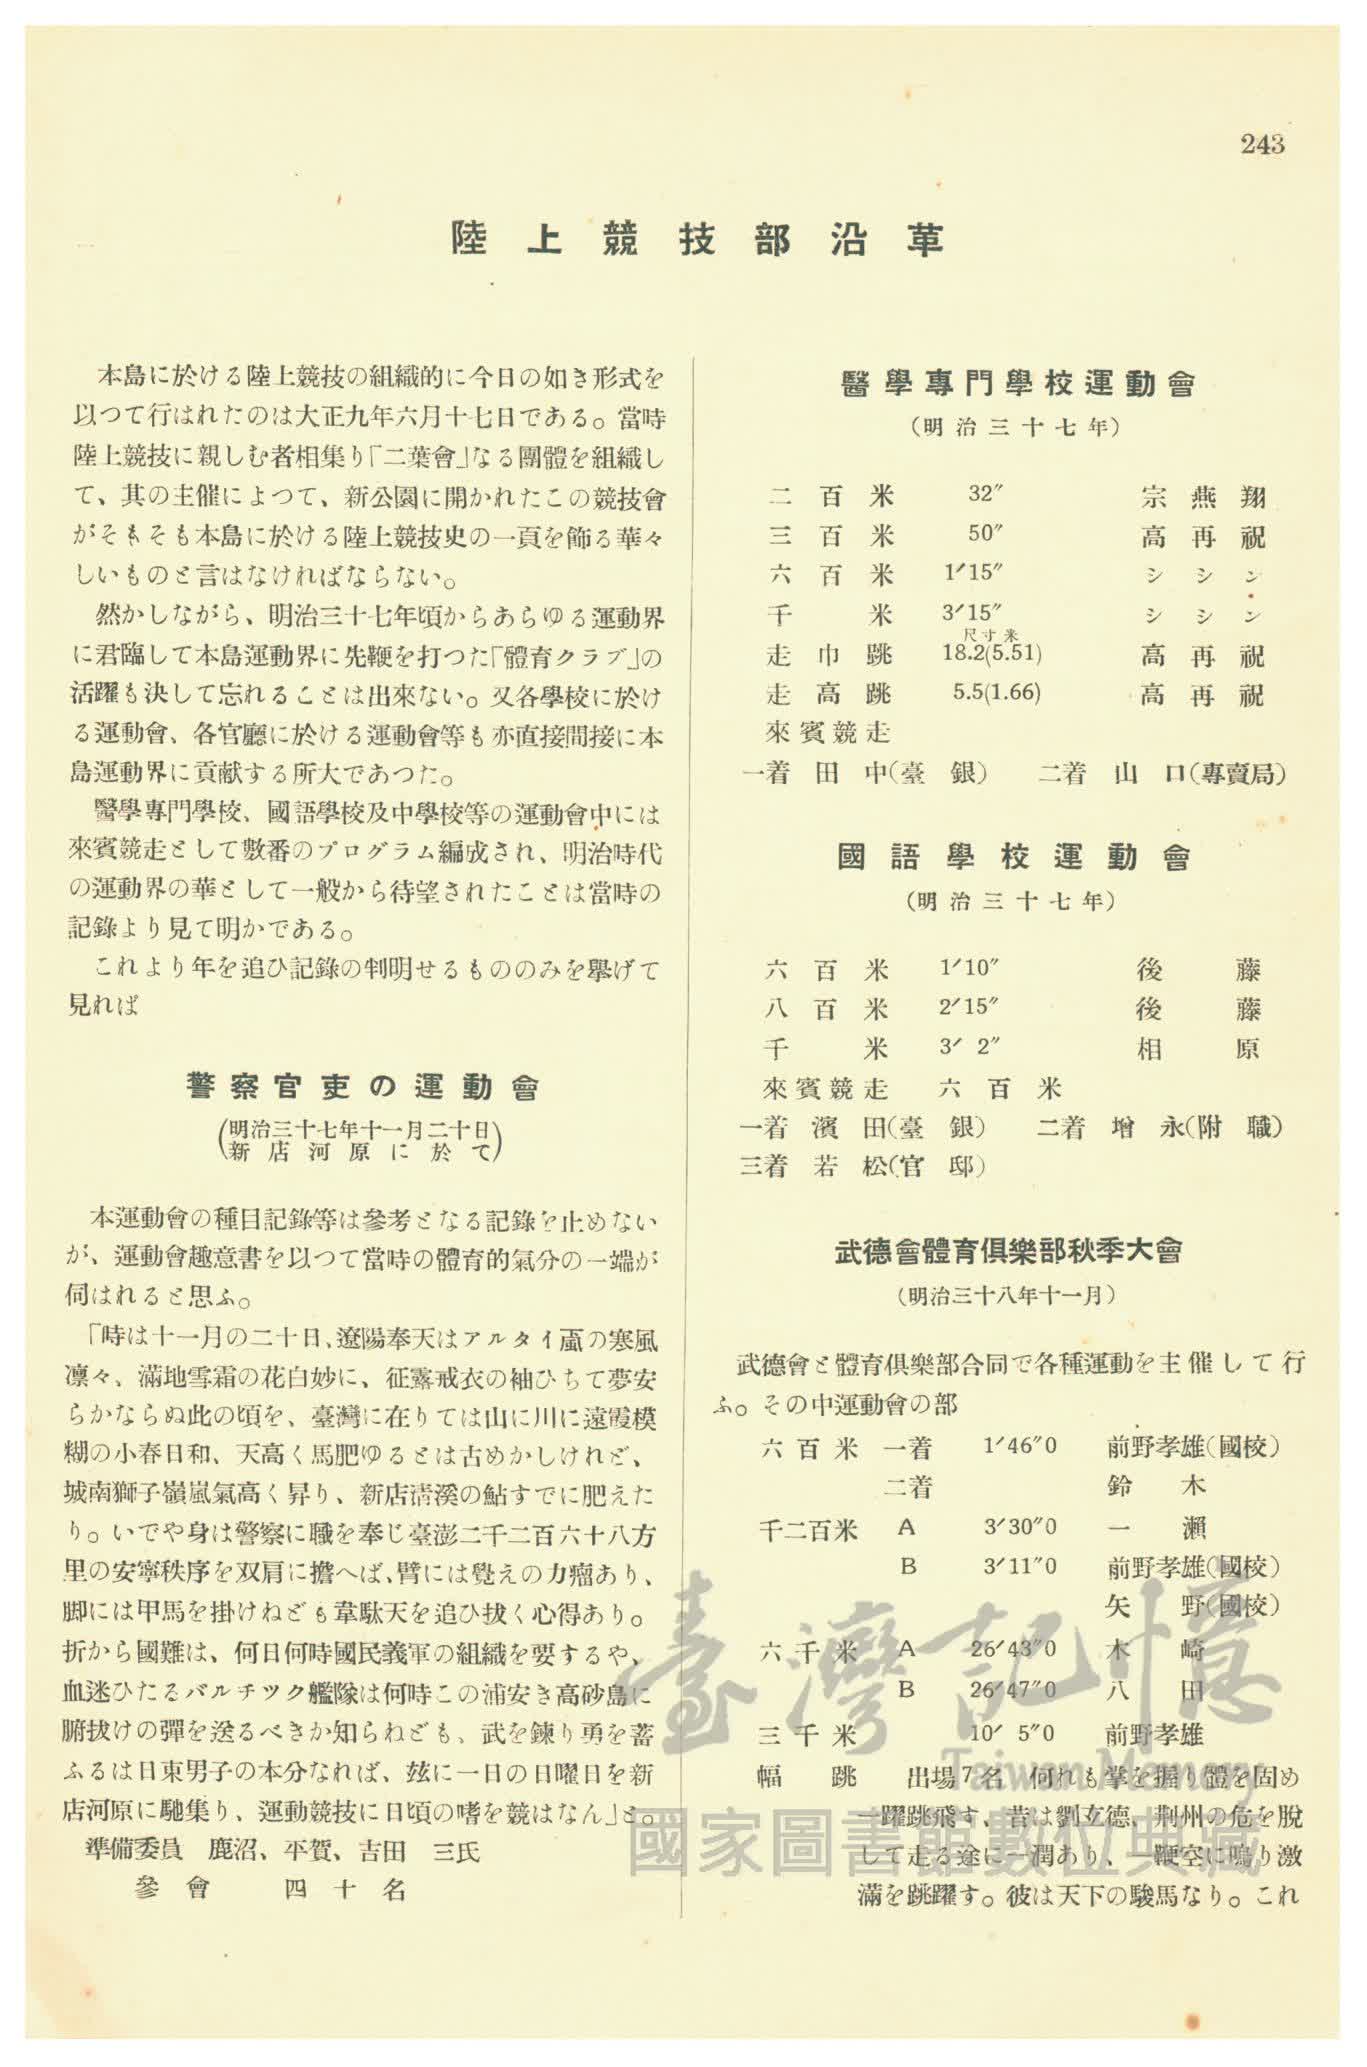 243
陸上競技部沿革
本島に於ける陸上競技の組織的に今日の如き形式を
以つて行はれたのは大正九年六月十七日である。當時
陸上競技に親しむ者相集り「二葉會」なる團體を組織し
て、其の主催によつて、新公園に開かれたこの競技會
がそもそも本島に於ける陸上競技史の一頁を飾る華々
しいものと言はなければならない。
然かしながら、明治三十七年頃からあらゆる運動界
に君臨して本島運動界に先鞭を打つた「體育クラブ」の
活躍も決して忘れることは出來ない。又各學校に於け
る運動會、各官廳に於ける運動會等も亦直接間接に本
島運動界に貢献する所大であつた。
醫學專門學校、國語學校及中學校等の運動會中には
來賓競走として數番のプログラム編成され、明治時代
の運動界の華として一般から待望されたことは當時の
記錄より見て明かである。
これより年を追ひ記錄の判明せるもののみを擧げて
見れば
警察官吏の運動會
(明治三十七年十一月二十日
新店河原に於て)
本運動會の種目記錄等は參考となる記錄を止めない
が、運動會趣意書を以つて當時の體育的氣分の一端が
伺はれると思ふ。
「時は十一月の二十日、遼陽奉天はアルタイ颪の寒風
凛々、滿地雪霜の花白妙に、征露戒衣の袖ひちて夢安
らかならぬ此の頃を、臺灣に在りては山に川に遠霞模
糊の小春日和、天高く馬肥ゆるとは古めかしけれど、
城南獅子嶺嵐氣高く昇り、新店淸溪の鮎すでに肥えた
り。いでや身は警察に職を奉じ臺澎二千二百六十八方
里の安寧秩序を双肩に擔へば、臂には覺えの力瘤あり、
脚には甲馬を掛けねども韋駄天を追ひ拔く心得あり。
折から國難は、何日何時國民義軍の組織を要するや、
血迷ひたるバルチツク艦隊は何時この浦安き高砂島に
腑拔けの彈を送るべきか知らねども、武を鍊り勇を蓄
ふるは日東男子の本分なれば、玆に一日の日曜日を新
店河原に馳集り、運動競技に日頃の嗜を競はなん」と。
準備委員　鹿沼、平賀、吉田　三氏
參會　四十名
醫學專門學校運動會
(明治三十七年)
二百米　32″　宗燕翔
三百米　50″　高再祝
六百米　1′15″　シシン
千米　3′15″　シシン
尺寸米
走巾跳　18.2(5.51)　高再祝
走高跳　5.5(1.66)　高再祝
來賓競走
一着　田中(臺銀)　二着　山口(專賣局)
國語學校運動會
(明治三十七年)
六百米　1′10″　後藤
八百米　2′15″　後藤
千米　3′ 2″　相原
來賓競走　六百米
一着　濱田(臺銀)　二着　增永(附職)
三着　若松(官邸)
武德會體育俱樂部秋季大會
(明治三十八年十一月)
武德會と體育俱樂部合同で各種運動を主催して行
ふ。その中運動會の部
六百米　一着　1′46″0　前野孝雄(國校)
二着　鈴木
千二百米　A　3′30″0　一瀨
B　3′11″0　前野孝雄(國校)
矢野(國校)
六千米　A　26′43″0　木崎
B　26′47″0　八田
三千米　10′ 5″0　前野孝雄
幅跳　出場7名　何れも掌を握り體を固め
一躍跳飛す、昔は劉立德、荆州の危を脫
して走る途に一澗あり、一鞭空に鳴り激
滿を跳躍す。彼は天下の駿馬なり。これ
臺灣記憶
Taiwan Memory
國家圖書館數位典藏